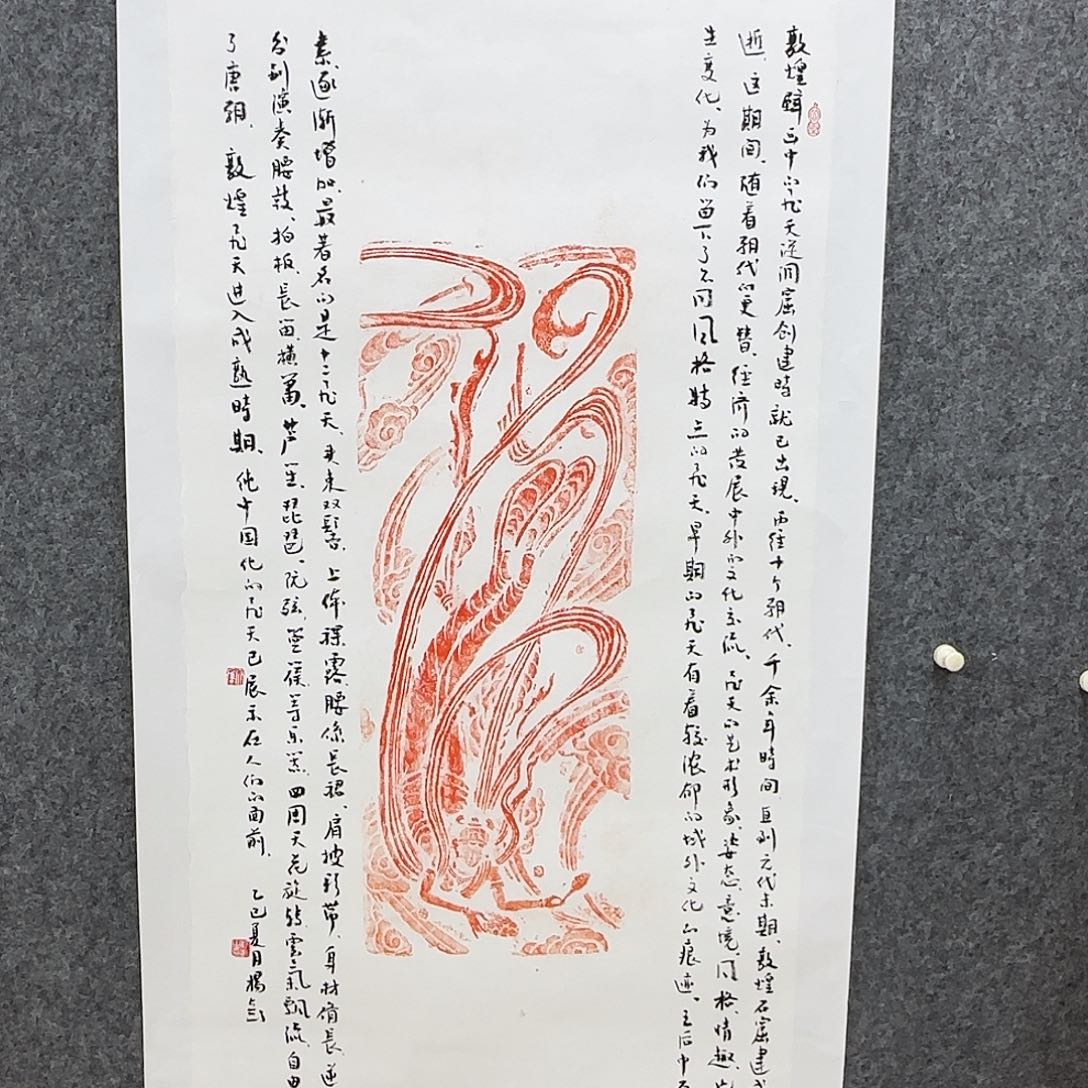 敦煌壁画中的飞天，从洞窟创建时就已出现，历经十个朝代，千余年时间，直到元代末期，敦煌石窟建
逝，这期间，随着朝代的更替，经济的发展中外的文化交流，飞天的艺术形象，姿态意境，风格情趣，
生变化，为我们留下了不同风格特点的飞天，早期的飞天有着较浓郁的域外文化的痕迹，之后中
素，逐渐增加，最著名的是十二飞天，束双髻，上体裸露腰系长裙，肩披彩带，身材修长，逆
分别演奏腰鼓、拍板、长笛、横箫、芦笙、琵琶、阮弦、箜篌等乐器，四周天花旋转，云气飘流，自由
了唐朝，敦煌飞天进入成熟时期，纯中国化的飞天已展示在人们的面前，
乙巳夏月杨